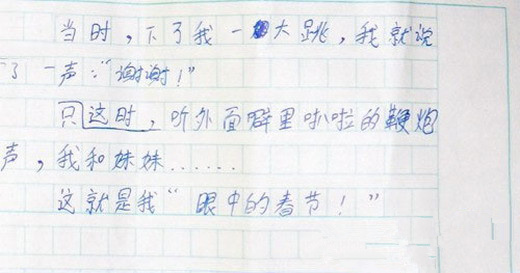 当时，下了我一大跳，我就说
了一声：“谢谢！”
只这时，听外面噼里叭啦的鞭炮
声，我和妹妹……
这就是我“眼中的春节！”